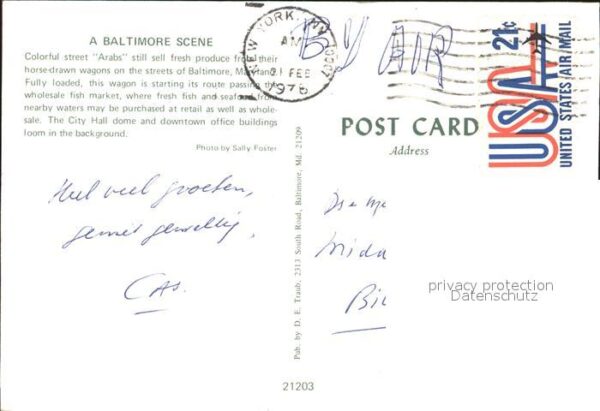 A BALTIMORE SCENE
Colorful street "Arabs" still sell fresh produce from their
horse-drawn wagons on the streets of Baltimore, Maryland.
Fully loaded, this wagon is starting its route passing the
wholesale fish market, where fresh fish and seafood from
nearby waters may be purchased at retail as well as whole-
sale. The City Hall dome and downtown office buildings
loom in the background.
Photo by Sally Foster
Heel veel groeten,
geniet geweldig,
Cas.
NEW YORK, NY
AM
21 FEB
1976
BY AIR
21c
USA
UNITED STATES AIR MAIL
POST CARD
Address
Pub. by D. E. Traub, 2313 South Road, Baltimore, Md. 21209
Mida
privacy protection
Datenschutz
21203